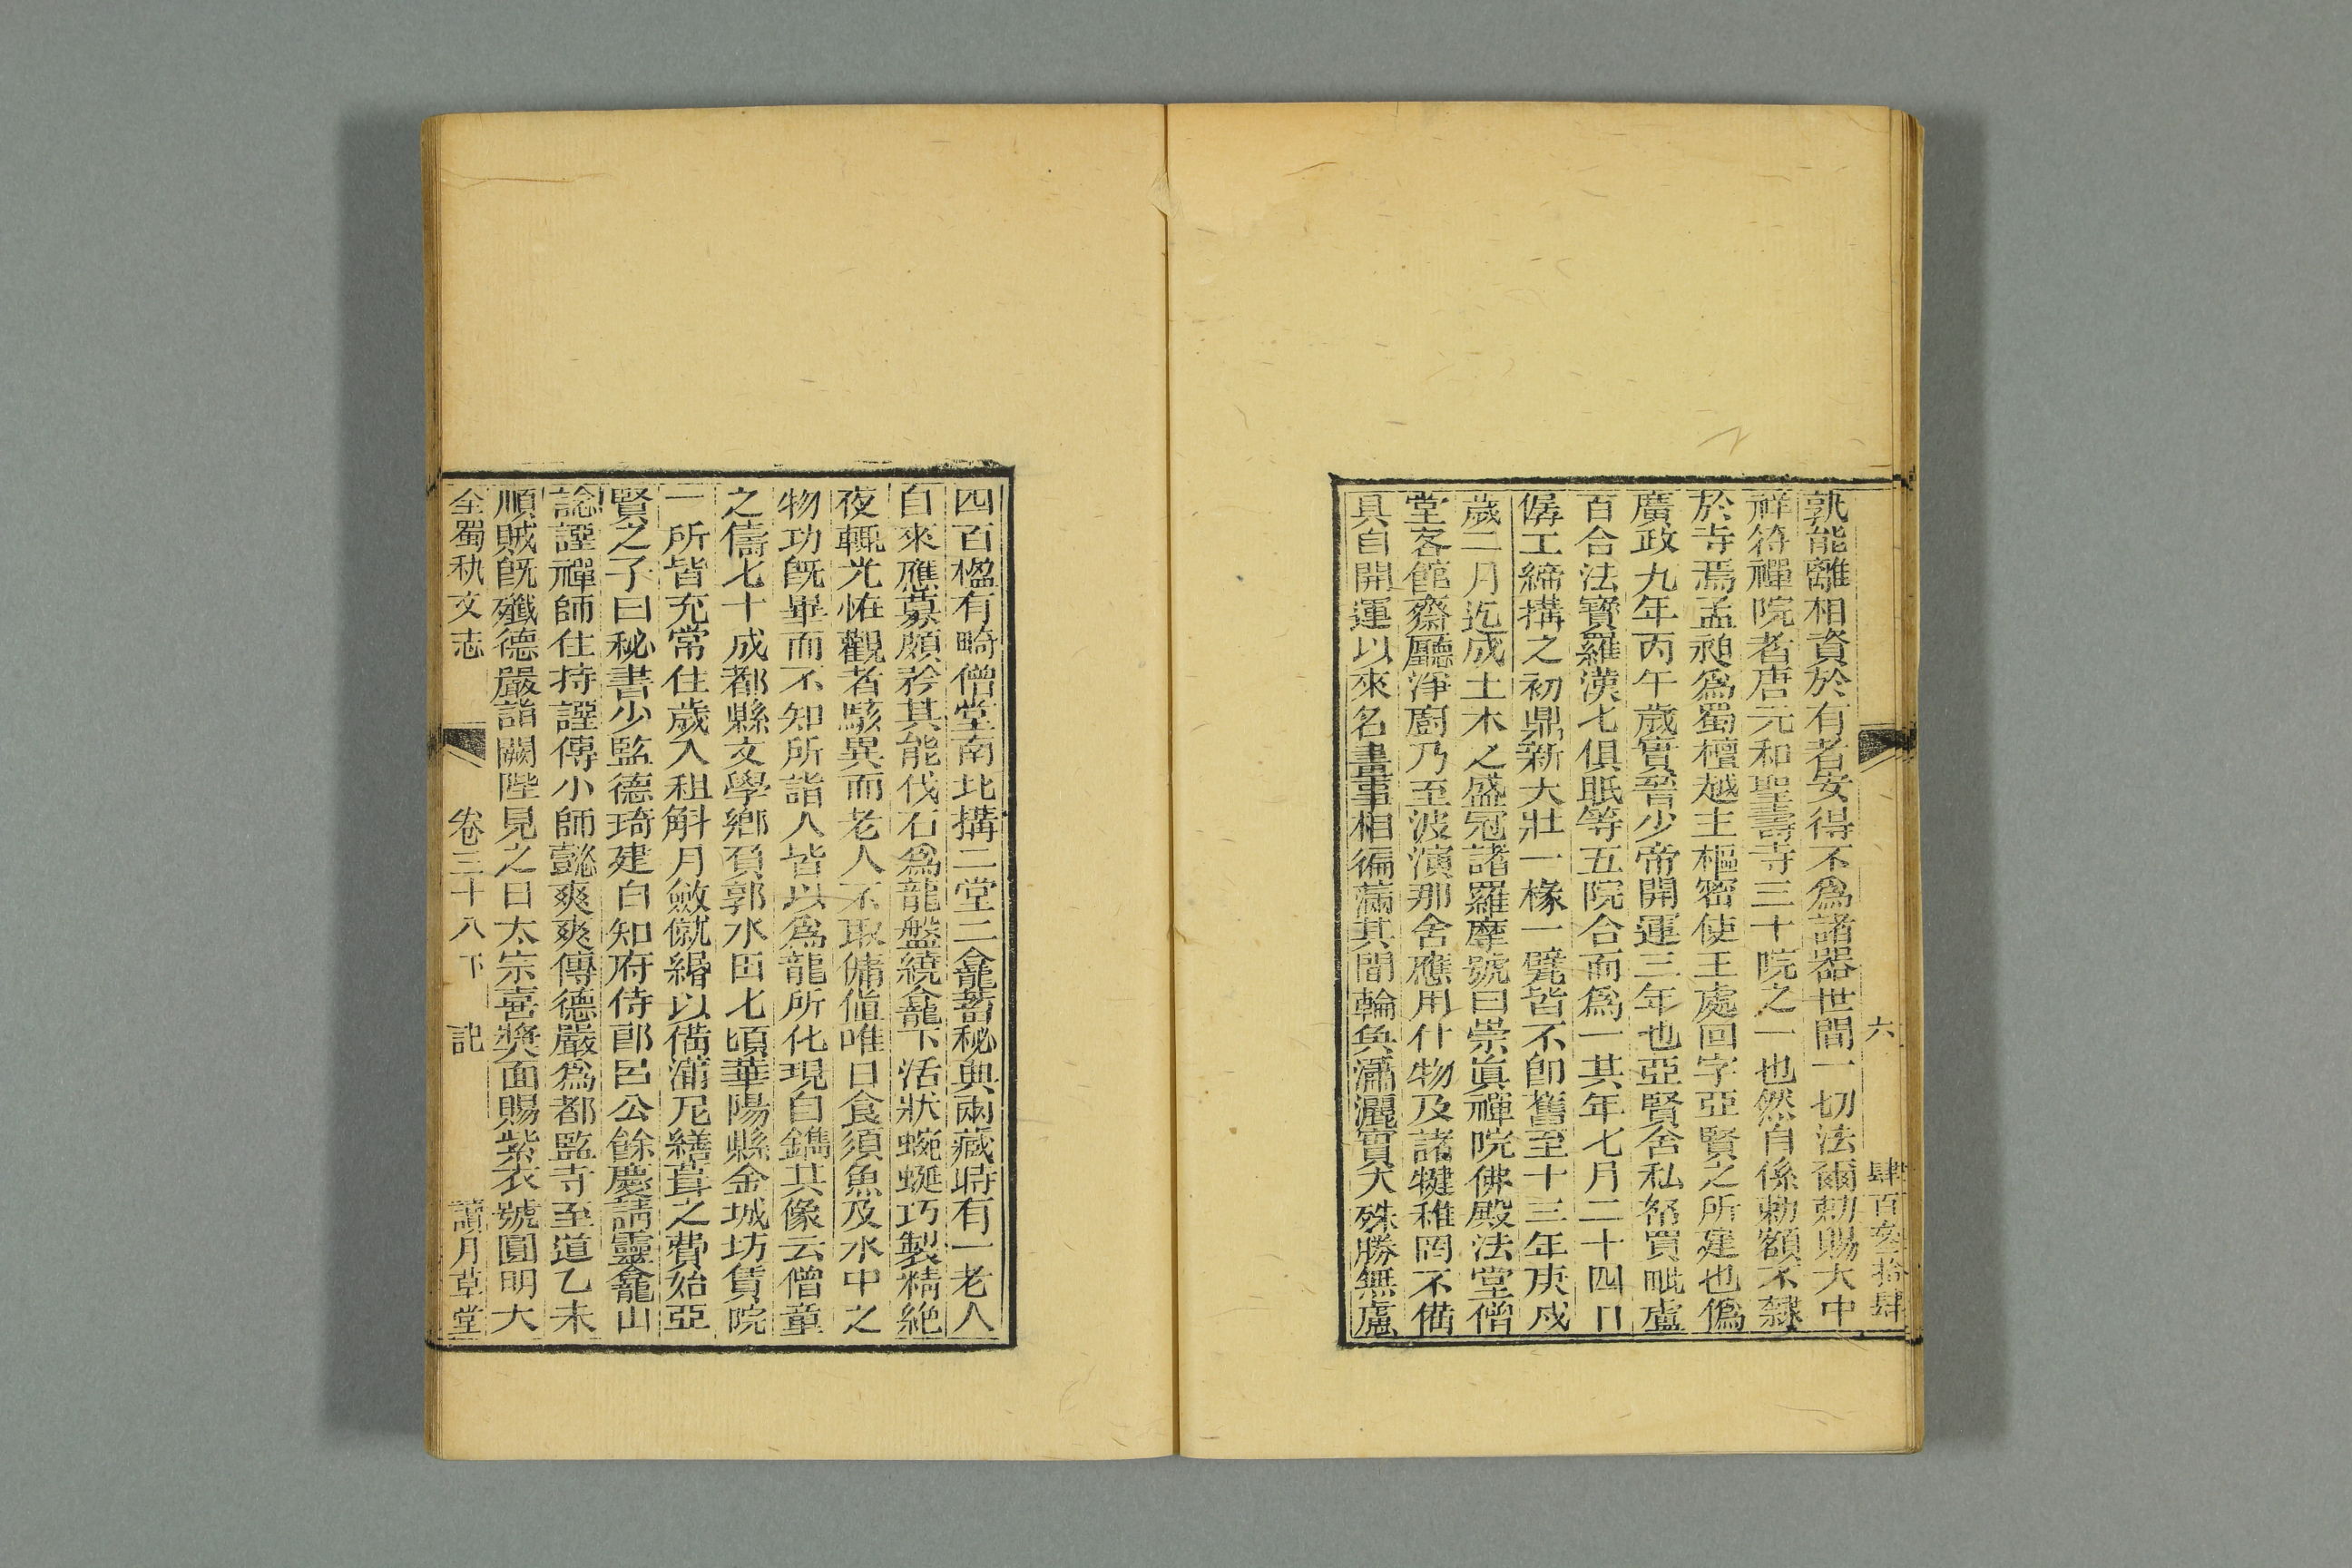 六 肆百叁拾肆
孰能離相資於有者安得不爲諸器世間一切法爾勅賜大中
祥符禪院者唐元和聖壽寺三十院之一也然自係勅額不隸
於寺焉孟昶爲蜀檀越主樞密使王處回字亞賢之所建也僞
廣政九年丙午歲實晉少帝開運三年也亞賢舍私帑買毗盧
百合法寶羅漢七俱胝等五院合而爲一其年七月二十四日
僝工締搆之初鼎新大壯一椽一甓皆不卽舊至十三年庚戍
歲二月迄成土木之盛冠諸羅摩號曰崇眞禪院佛殿法堂僧
堂客館齋廳淨廚乃至波演那舍應用什物及諸犍稚罔不備
具自開運以來名畫事相徧滿其間輪奐瀟灑實大殊勝無慮
四百楹有畸僧堂南北搆二堂二龕蓄秘典兩藏時有一老人
自來應募頗矜其能伐石爲龍盤繞龕下活狀蜿蜒巧製精絶
夜輒光恠觀者駭異而老人不取傭値唯日食須魚及水中之
物功旣畢而不知所詣人皆以爲龍所化現自鐫其像云僧童
之儔七十成都縣文學鄉負郭水田七頃華陽縣金城坊賃院
一所皆充常住歲入租斛月斂僦緡以備滿尼繕葺之費始亞
賢之子曰秘書少監德琦建白知府侍郎呂公餘慶請靈龕山
諗諲禪師住持諲傳小師懿爽爽傳德嚴爲都監寺至道乙未
順賊旣殱德嚴詣闕陛見之日太宗喜奬面賜紫衣號圓明大
全蜀秇文志 卷三十八下 記 讀月草堂